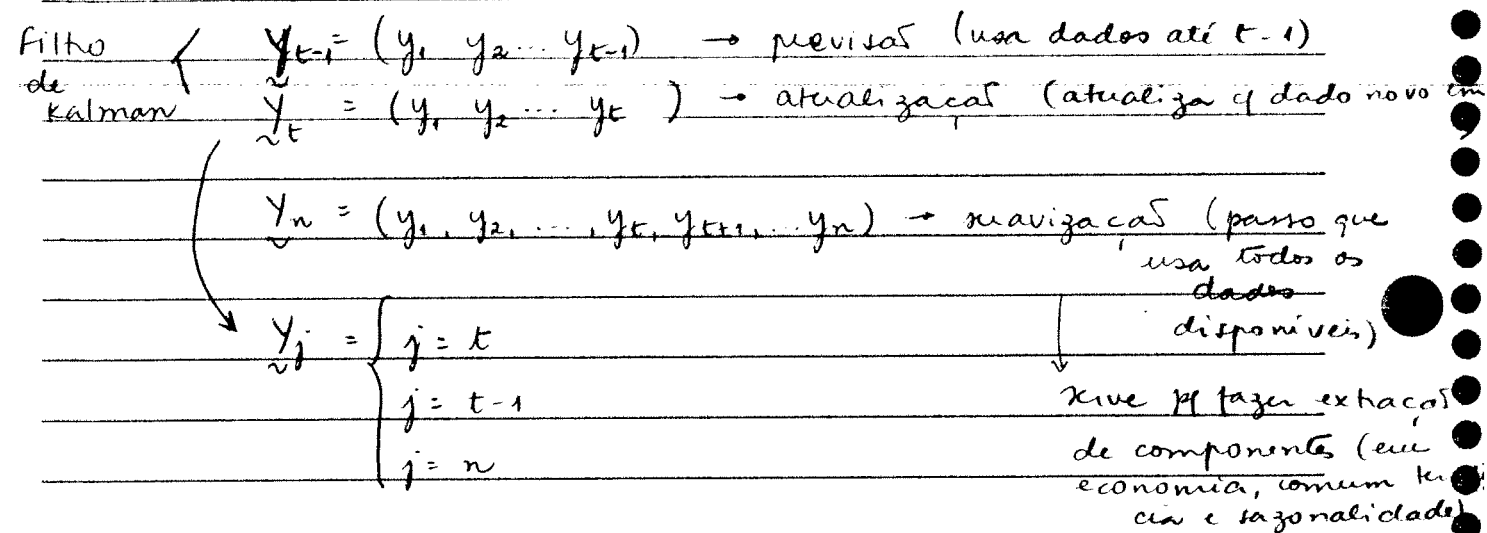 Filtro Y_{t-1} = (y_1 y_2 ... y_{t-1}) → previsão (usa dados até t-1)
de
Kalman Y_t = (y_1 y_2 ... y_t) → atualização (atualiza c/ dado novo em
Y_n = (y_1, y_2, ..., y_t, y_{t+1}, ... y_n) → suavização (passo que
usa todos os
dados
disponíveis)
Y_j = { j = t
j = t-1
j = n
serve p/ fazer extração
de componentes (em
economia, comum
cia e sazonalidade)